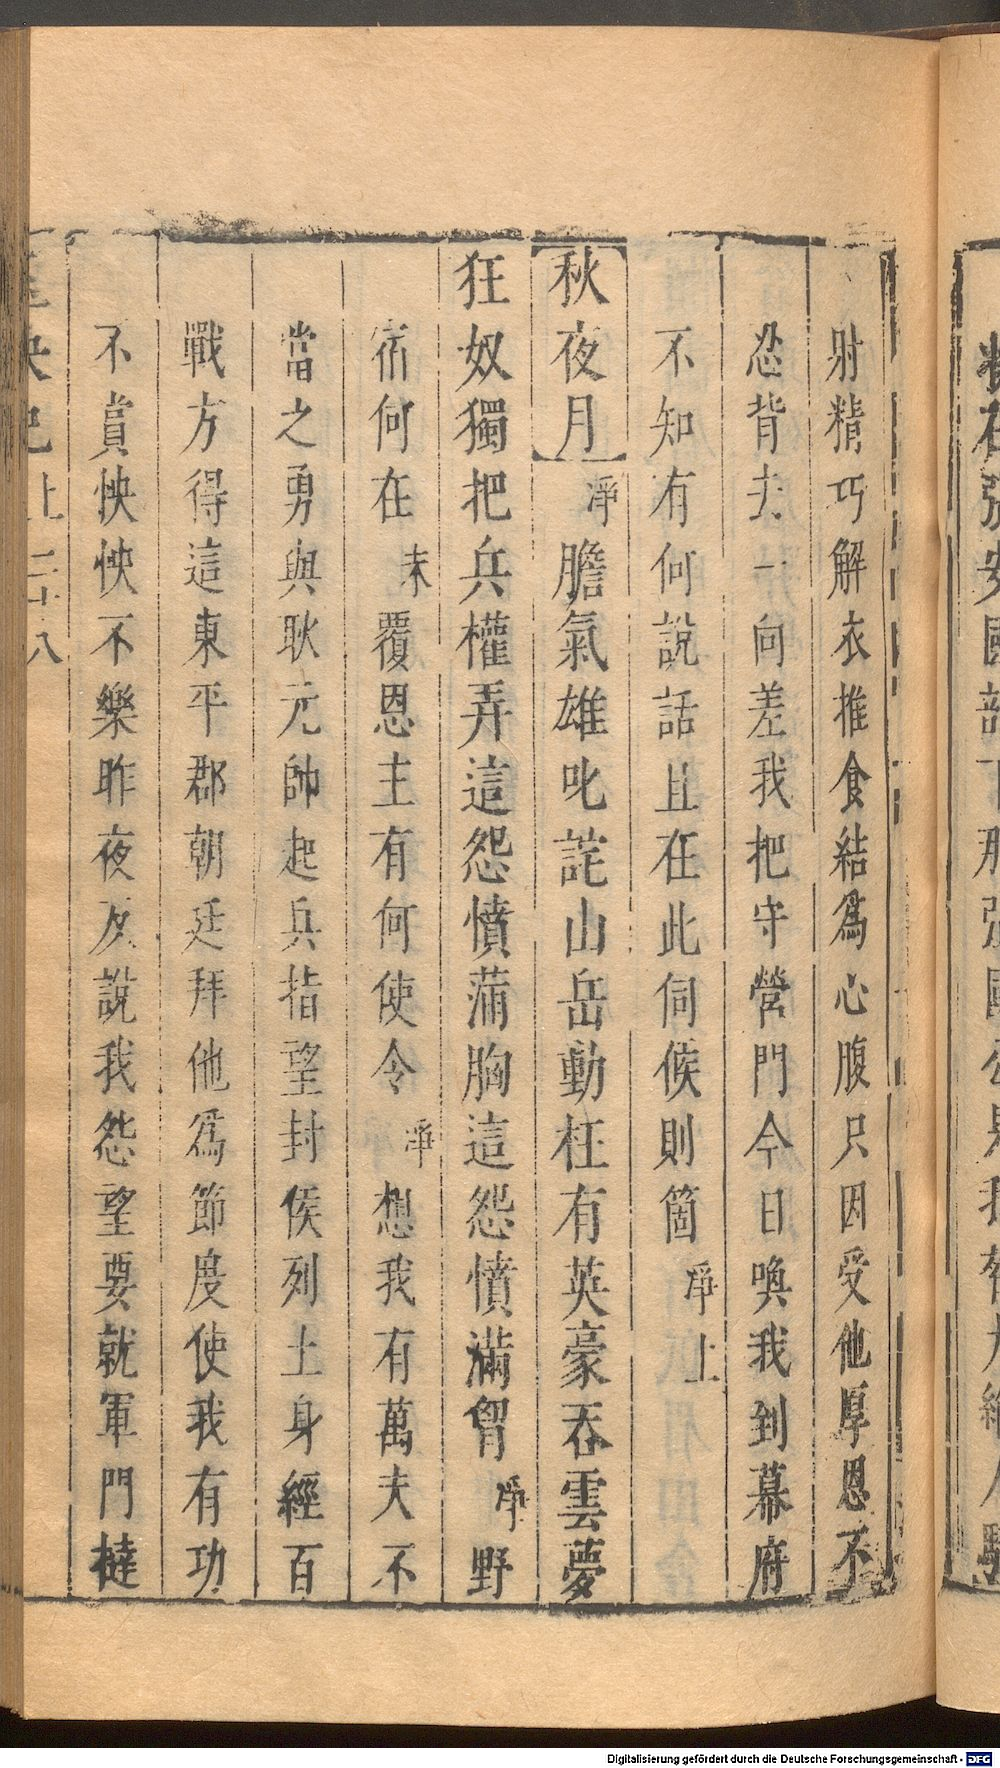 射精巧解衣推食結爲心腹只因受他厚恩不
忍背去一向差我把守營門今日喚我到幕府
不知有何說話且在此伺候則箇淨上
秋夜月淨膽氣雄叱詫山岳動枉有英豪吞雲夢
狂奴獨把兵權弄這怨憤蒲胸這怨憤滿胷淨野
宿何在末覆恩主有何使令淨想我有萬夫不
當之勇與耿元帥起兵指望封侯列土身經百
戰方得這東平郡朝廷拜他爲節度使我有功
不賞怏怏不樂昨夜反說我怨望要就軍門撻
上 二十八
Digitalisierung gefördert durch die Deutsche Forschungsgemeinschaft - DFG